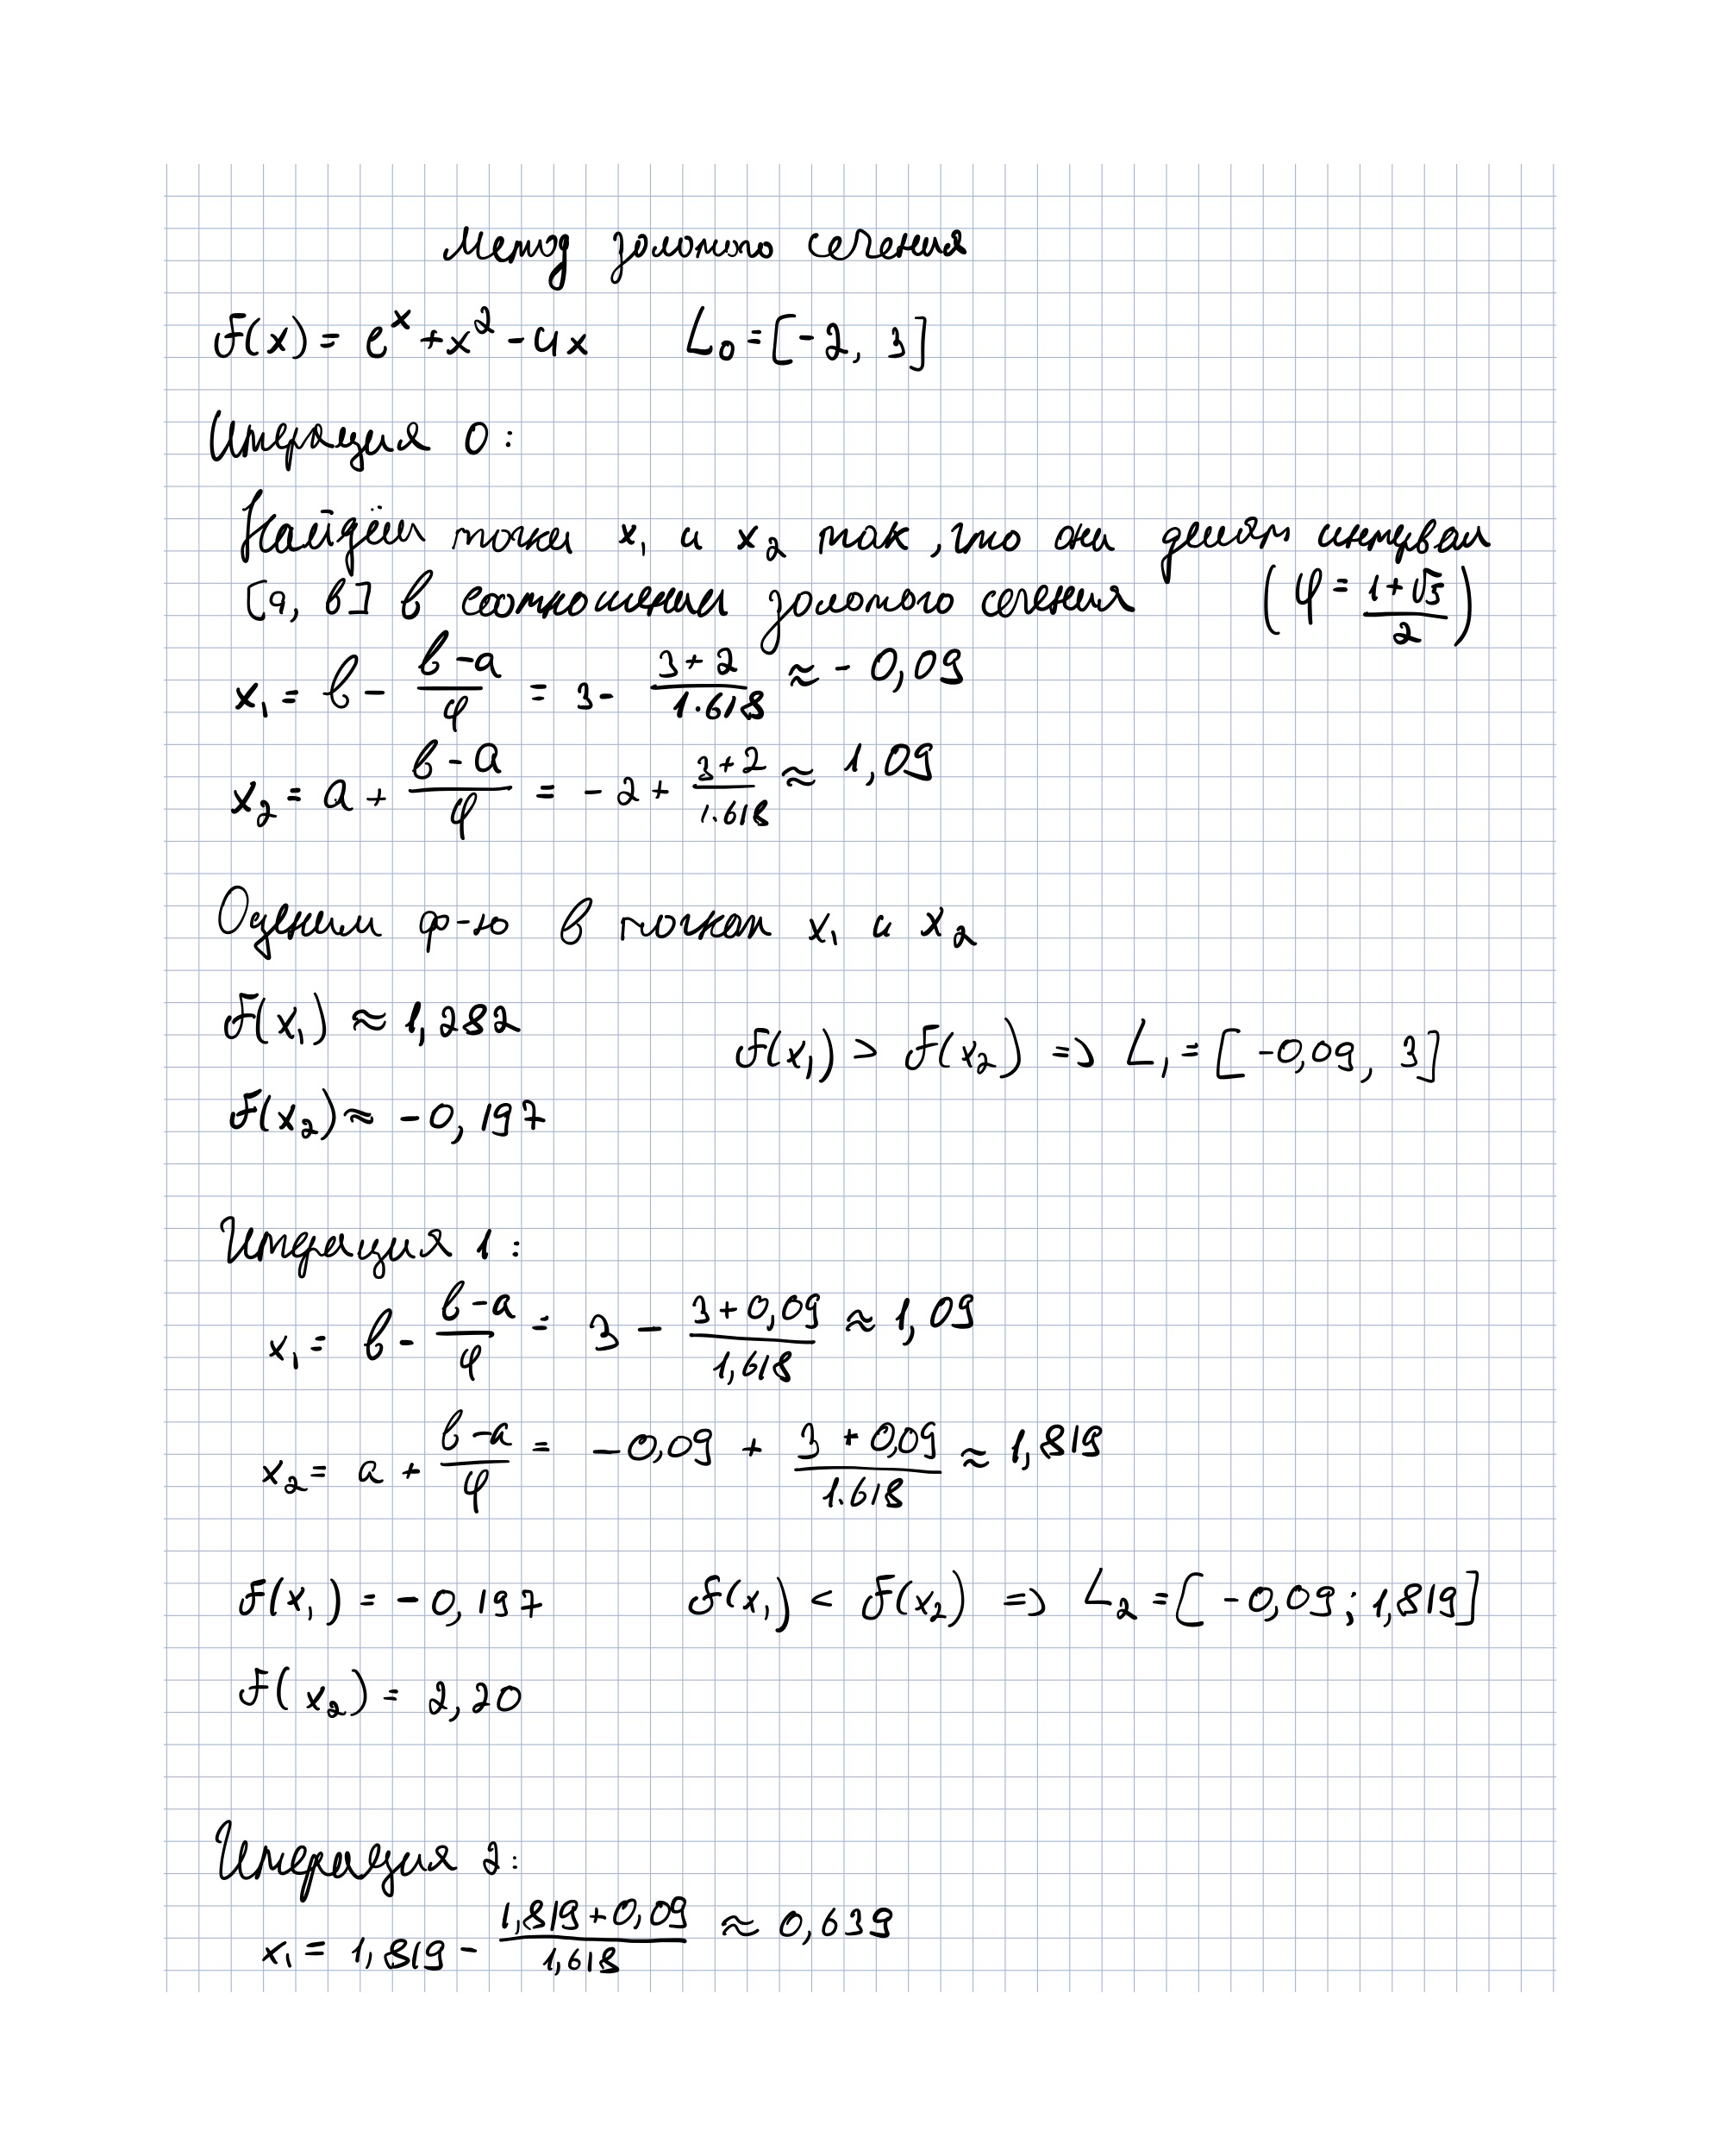 Метод золотого сечения
F(x) = e^x + x^2 - 4x L₀ = [-2, 3]
Итерация 0:
Найдём точки x₁ и x₂ так, что они делят интервал
[a, b] в соотношении золотого сечения (φ = (1+√5)/2)
x₁ = b - (b-a)/φ = 3 - (3+2)/1.618 ≈ -0,09
x₂ = a + (b-a)/φ = -2 + (3+2)/1.618 ≈ 1,09
Оценим ф-ю в точках x₁ и x₂
F(x₁) ≈ 1,282
F(x₁) > F(x₂) => L₁ = [-0,09, 3]
F(x₂) ≈ -0,197
Итерация 1:
x₁ = b - (b-a)/φ = 3 - (3+0,09)/1,618 ≈ 1,09
x₂ = a + (b-a)/φ = -0,09 + (3+0,09)/1.618 ≈ 1,819
F(x₁) = -0,197 F(x₁) < F(x₂) => L₂ = [-0,09; 1,819]
F(x₂) = 2,20
Итерация 2:
x₁ = 1,819 - (1,819+0,09)/1,618 ≈ 0,639